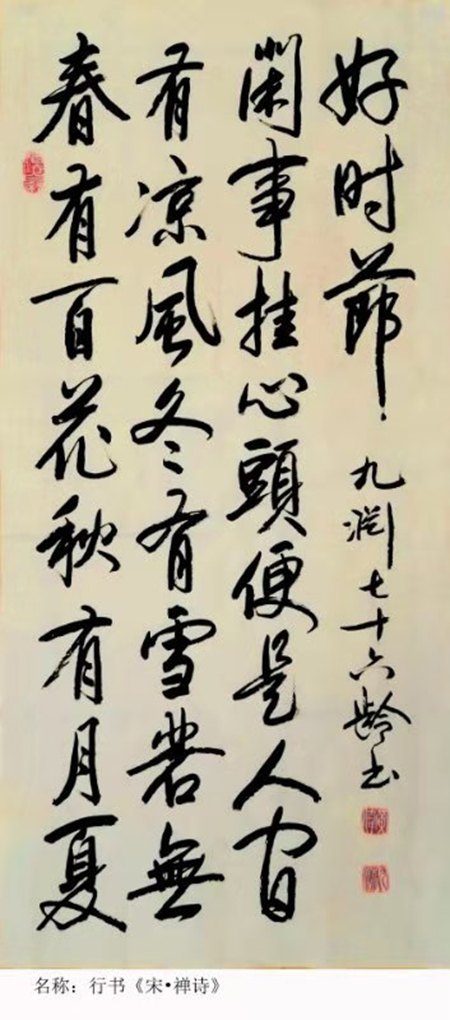 春有百花秋有月夏
有凉風冬有雪若無
閑事挂心頭便是人間
好时節
九渊七十六齡书
名称：行书《宋•禅诗》